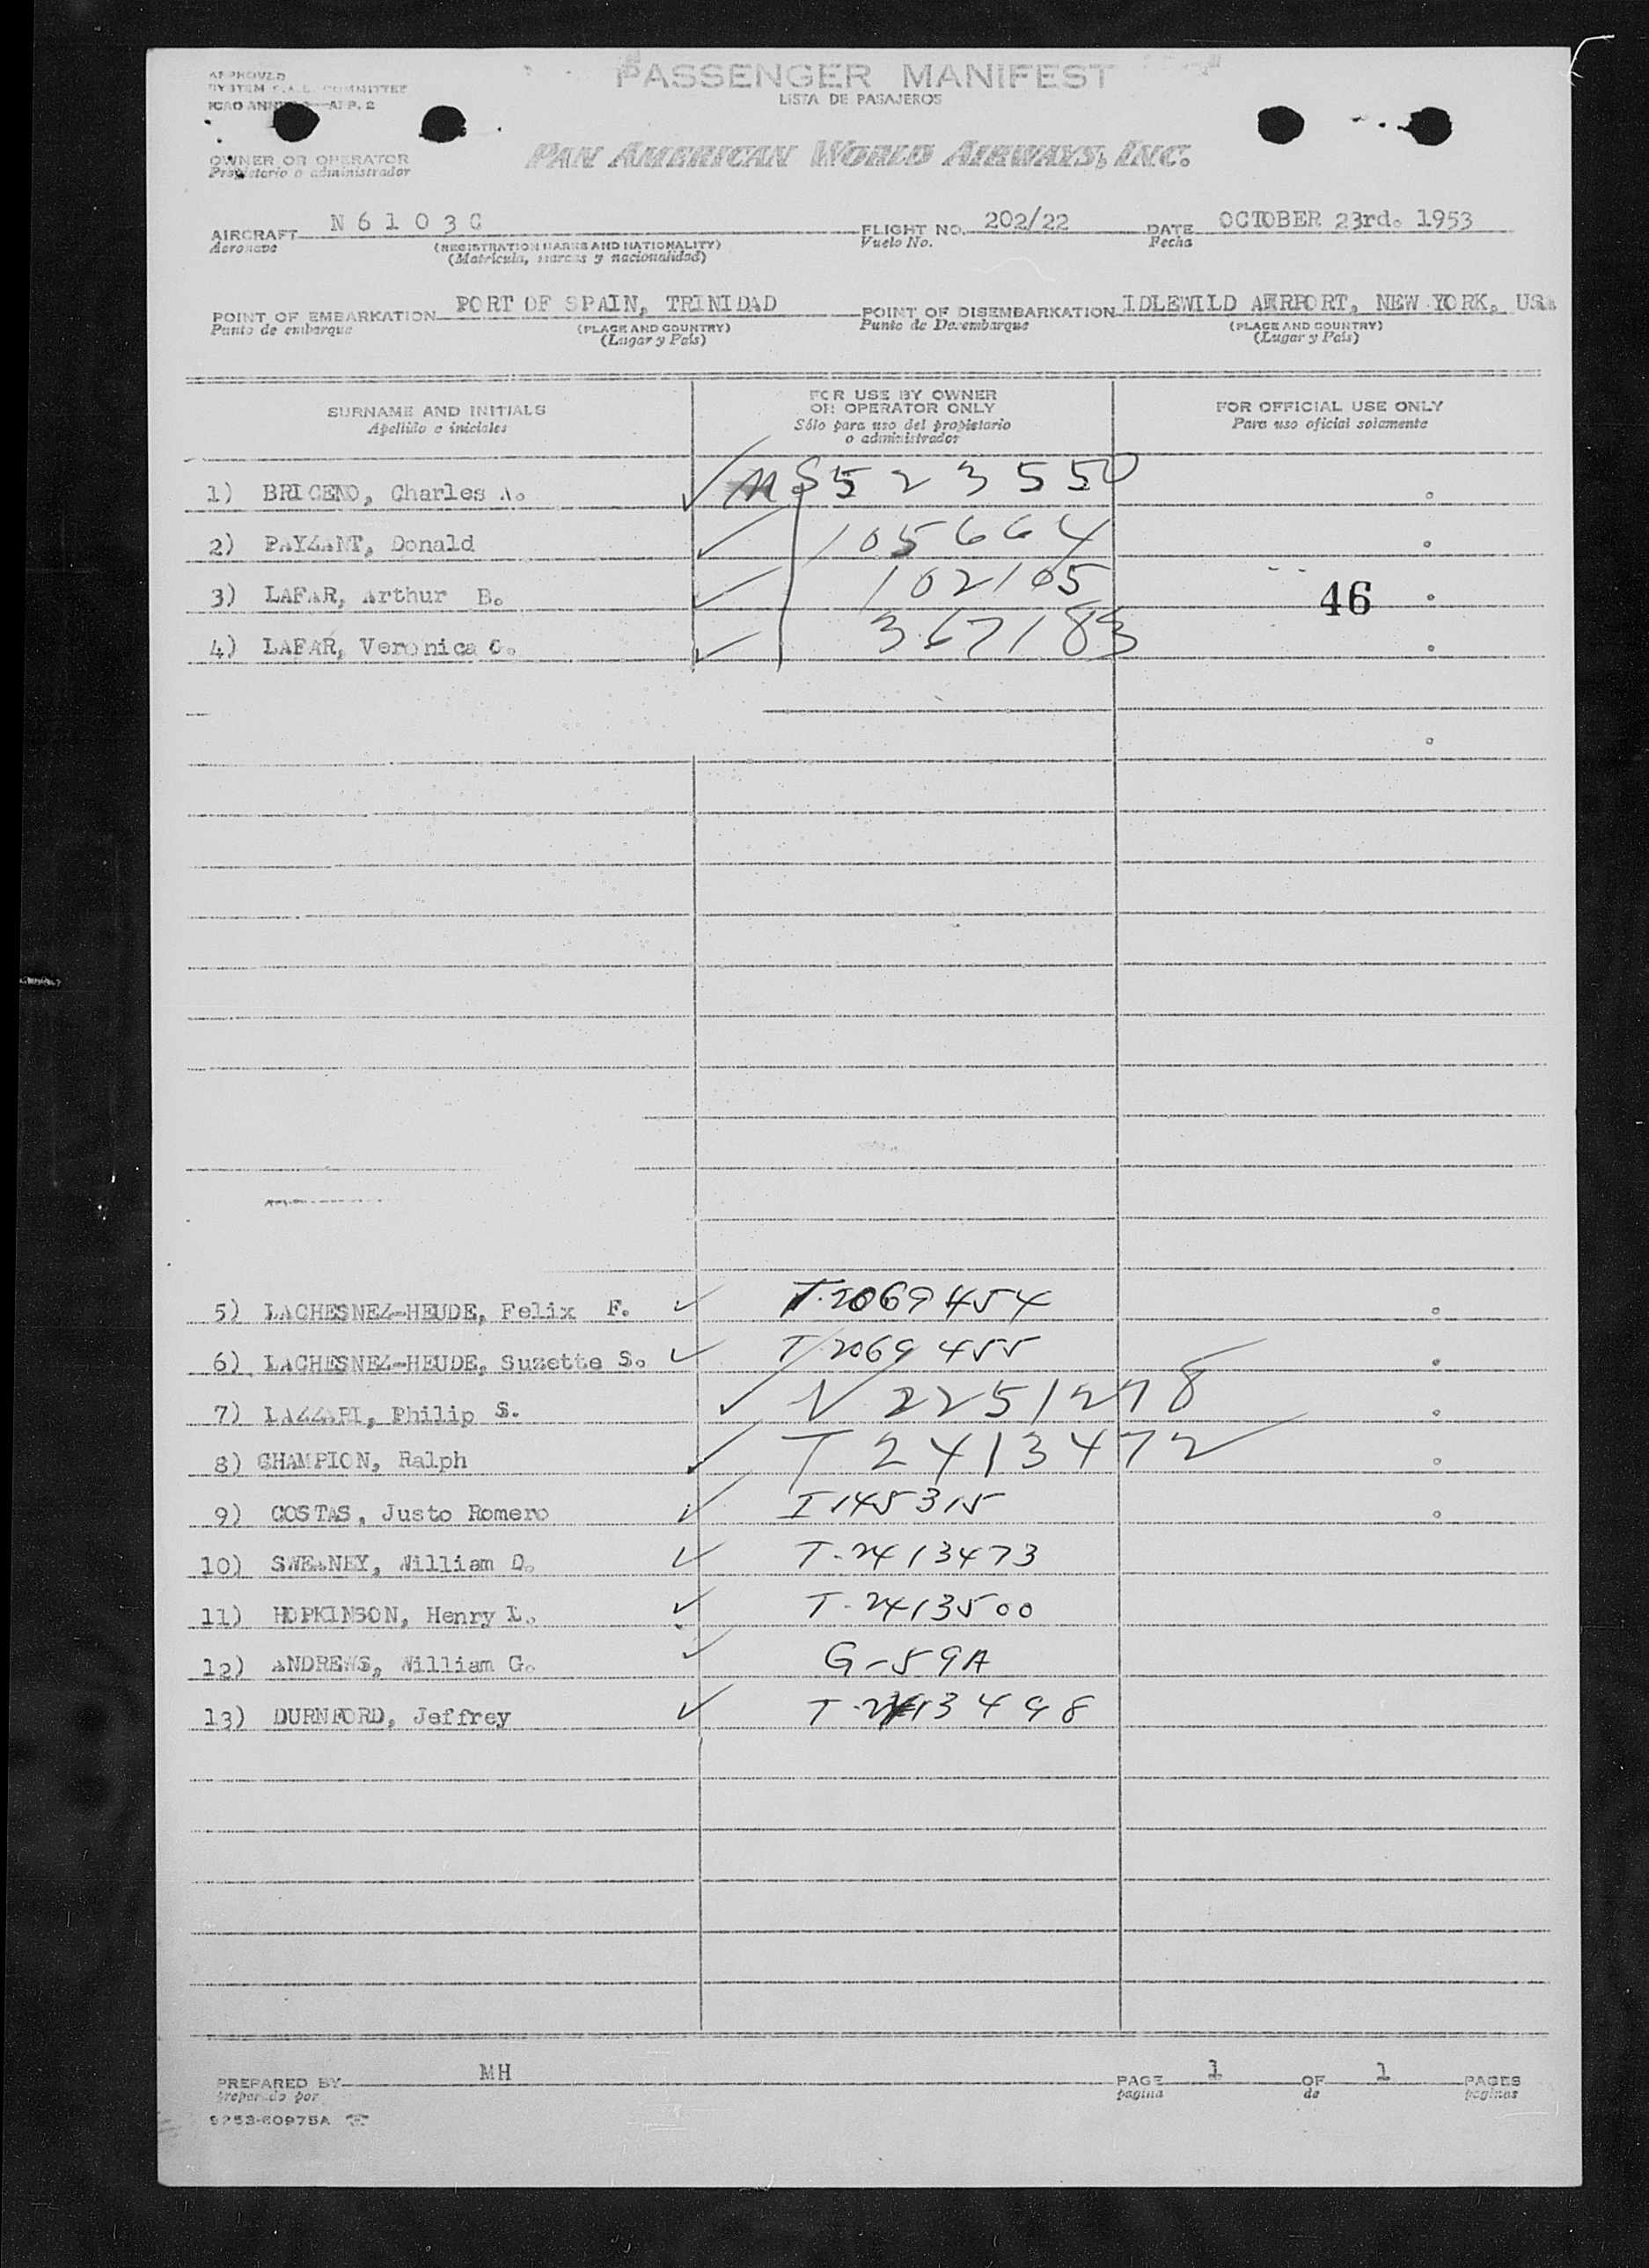 APPROVED
SYSTEM F.A.L. COMMITTEE
ICAO ANNEX 9—APP. 2
PASSENGER MANIFEST
LISTA DE PASAJEROS
OWNER OR OPERATOR
Propietario o administrador
PAN AMERICAN WORLD AIRWAYS, INC.
AIRCRAFT N 6 1 0 3 C FLIGHT NO. 202/22 DATE OCTOBER 23rd. 1953
Aeronave (REGISTRATION MARKS AND NATIONALITY) Vuelo No. Fecha
(Matrícula, marcas y nacionalidad)
POINT OF EMBARKATION PORT OF SPAIN, TRINIDAD POINT OF DISEMBARKATION IDLEWILD AIRPORT, NEW YORK, USA
Punto de embarque (PLACE AND COUNTRY) Punto de Desembarque (PLACE AND COUNTRY)
(Lugar y País) (Lugar y País)
SURNAME AND INITIALS FOR USE BY OWNER OR OPERATOR ONLY FOR OFFICIAL USE ONLY
Apellido e iniciales Sólo para uso del propietario o administrador Para uso oficial solamente
1) BRICENO, Charles A. 523550
2) PAYZANT, Donald 105664
3) LAFAR, Arthur B. 102105
46
4) LAFAR, Veronica C. 367183
5) LACHESNEZ-HEUDE, Felix F. T.2069454
6) LACHESNEZ-HEUDE, Suzette S. T 2069455
7) LAZZARI, Philip S. V 2251278
8) CHAMPION, Ralph T 2413472
9) COSTAS, Justo Romero I 145315
10) SWEANEY, William D. T-2413473
11) HOPKINSON, Henry L. T-2413500
12) ANDREWS, William G. G-59A
13) DURNFORD, Jeffrey T-2413498
PREPARED BY MH PAGE 1 OF 1 PAGES
preparado por pagina de paginas
9253-60975A